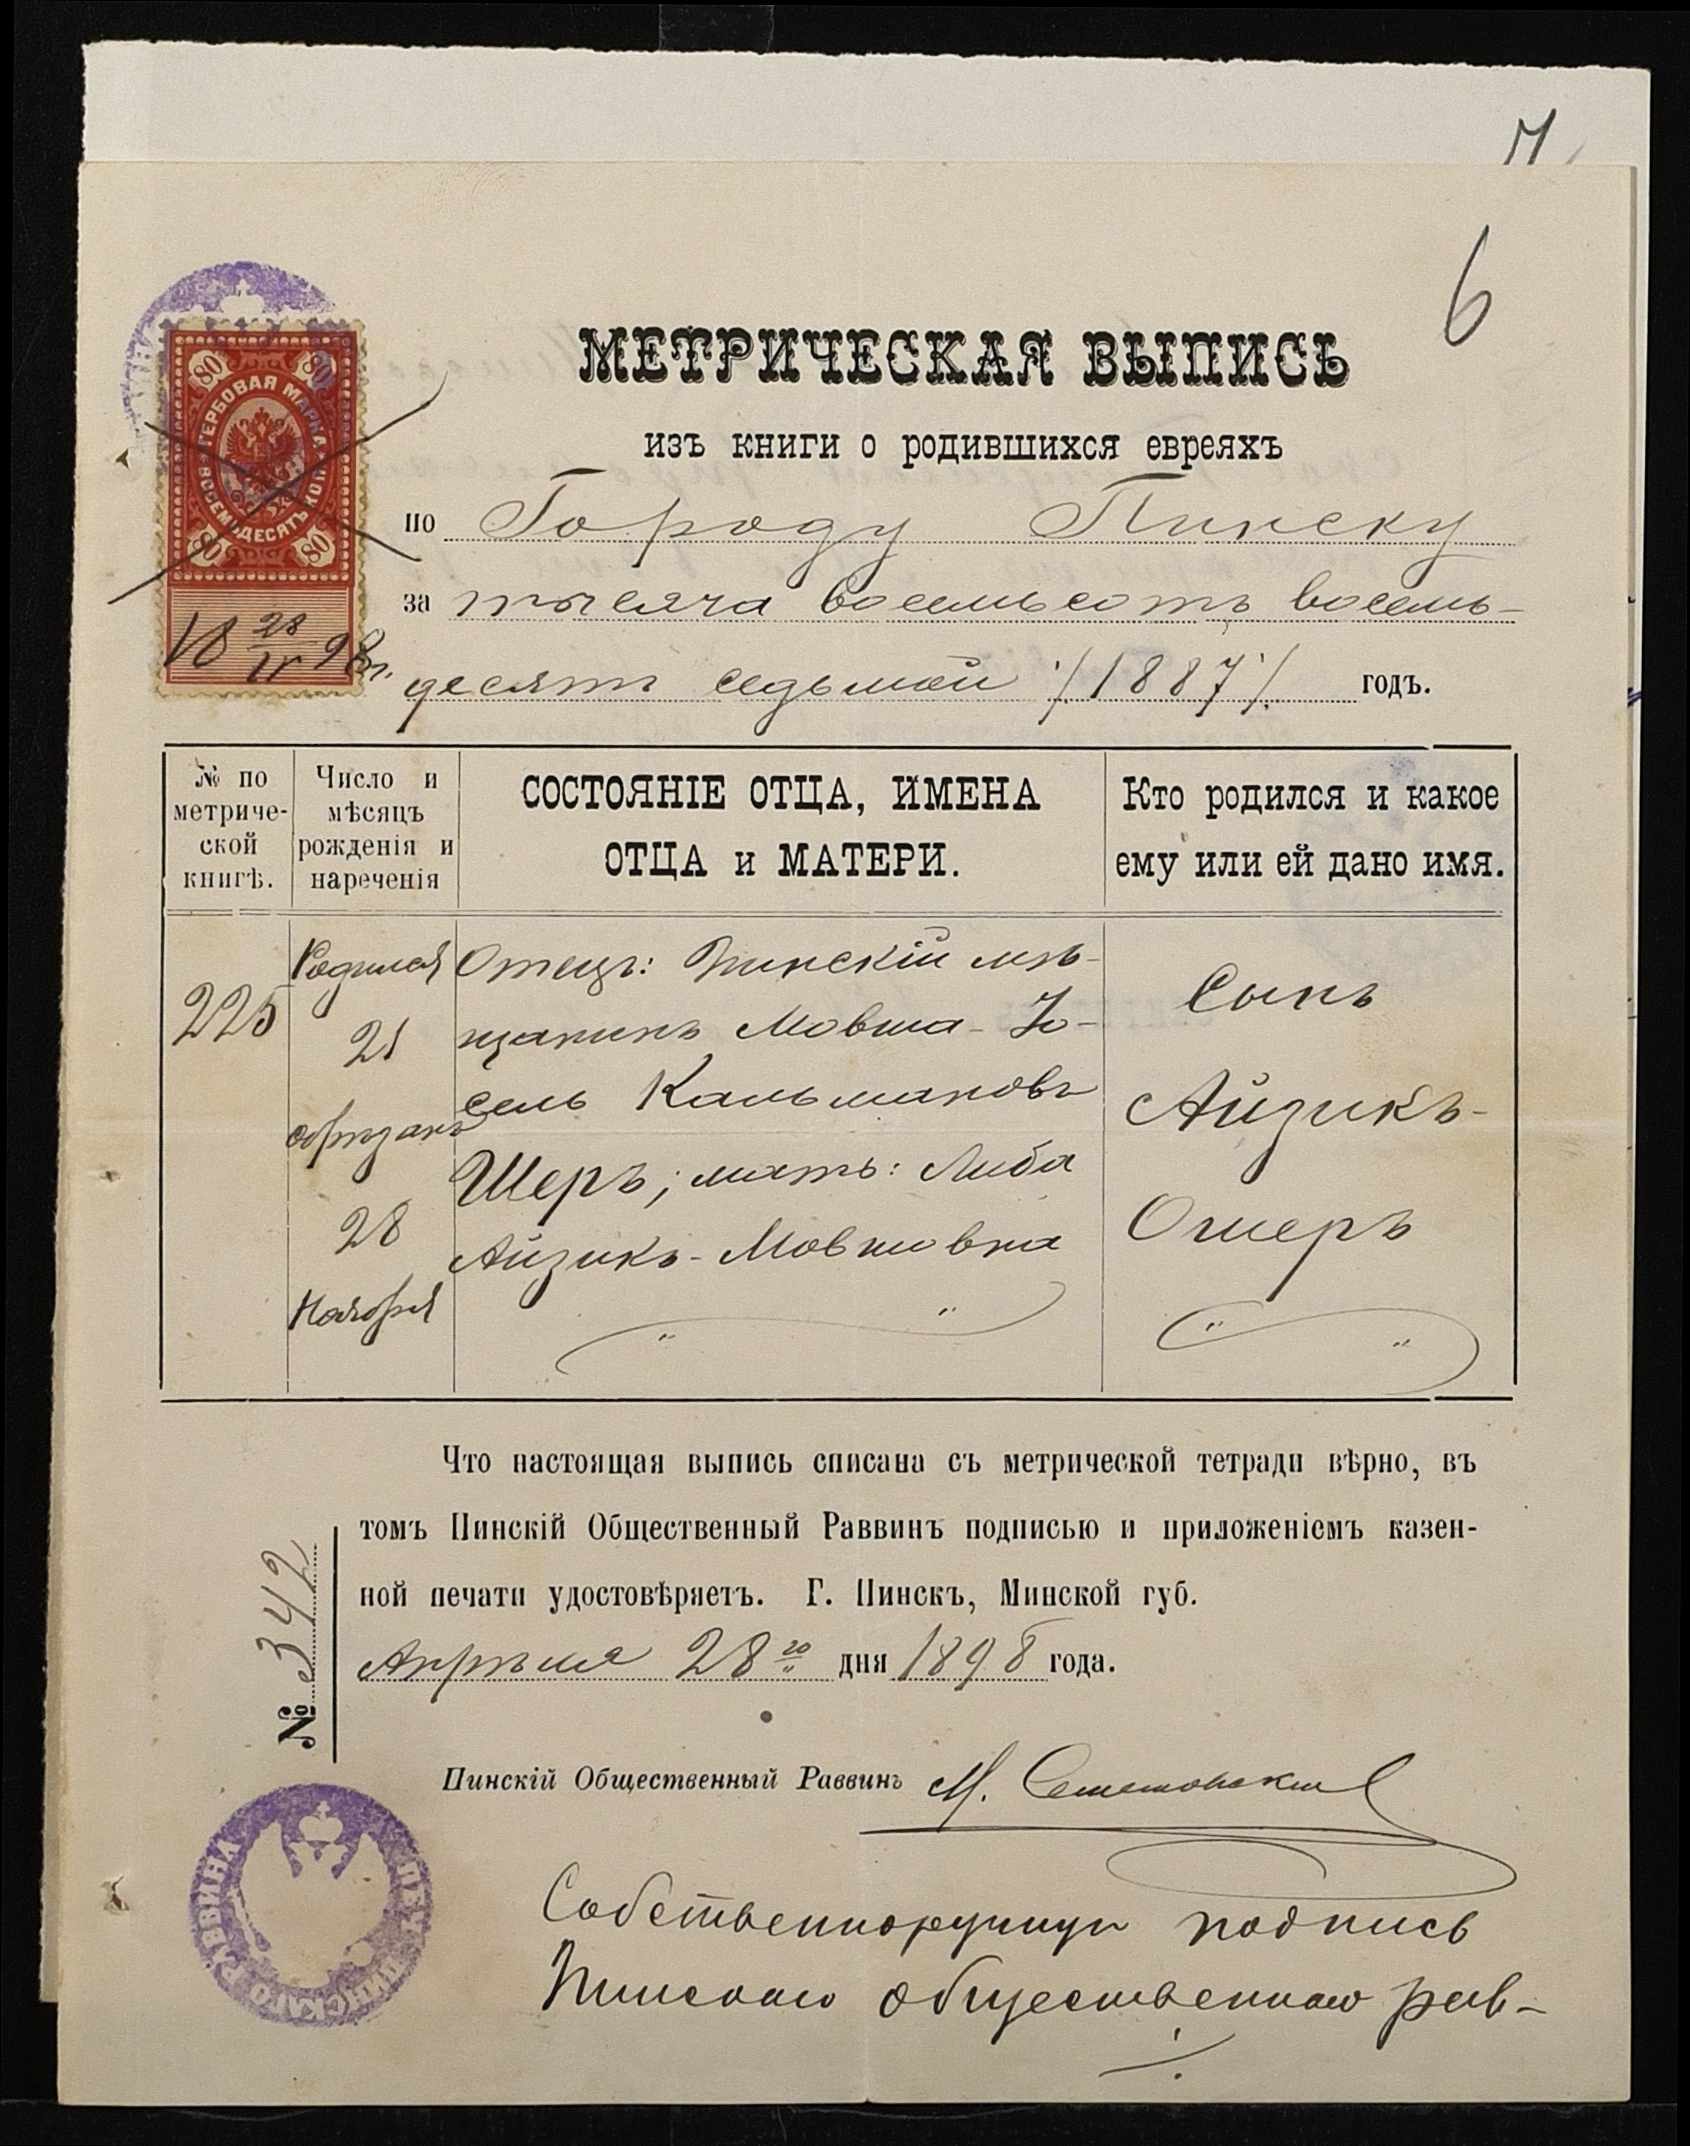 6
МЕТРИЧЕСКАЯ ВЫПИСЬ
изъ книги о родившихся евреяхъ
по Городу Пинску
за тысяча восемьсотъ восемь-
десятъ седьмой /1887/ годъ.
80 80
ГЕРБОВАЯ МАРКА
ВОСЕМЬДЕСЯТЪ КОП.
80 80
18 28/IV 98 г.
№ по метриче-ской книгѣ.
Число и мѣсяцъ рожденія и нареченія
СОСТОЯНІЕ ОТЦА, ИМЕНА
ОТЦА и МАТЕРИ.
Кто родился и какое
ему или ей дано имя.
225
Родился
21
обрѣзанъ
28
Ноября
Отецъ: Пинскій мѣ-
щанинъ Мовша-Іо-
сель Кальмановъ
Шеръ; мать: Либа
Айзикъ-Мовшовна
Сынъ
Айзикъ-
Ошеръ
Что настоящая выпись списана съ метрической тетради вѣрно, въ
томъ Пинскій Общественный Раввинъ подписью и приложеніемъ казен-
ной печати удостовѣряетъ. Г. Пинскъ, Минской губ.
Апрѣля 28го дня 1898 года.
№ 342
Пинскій Общественный Раввинъ М.
ПИНСКАГО РАВВИНА
Собственноручную подпись
Пинскаго общественнаго рав-